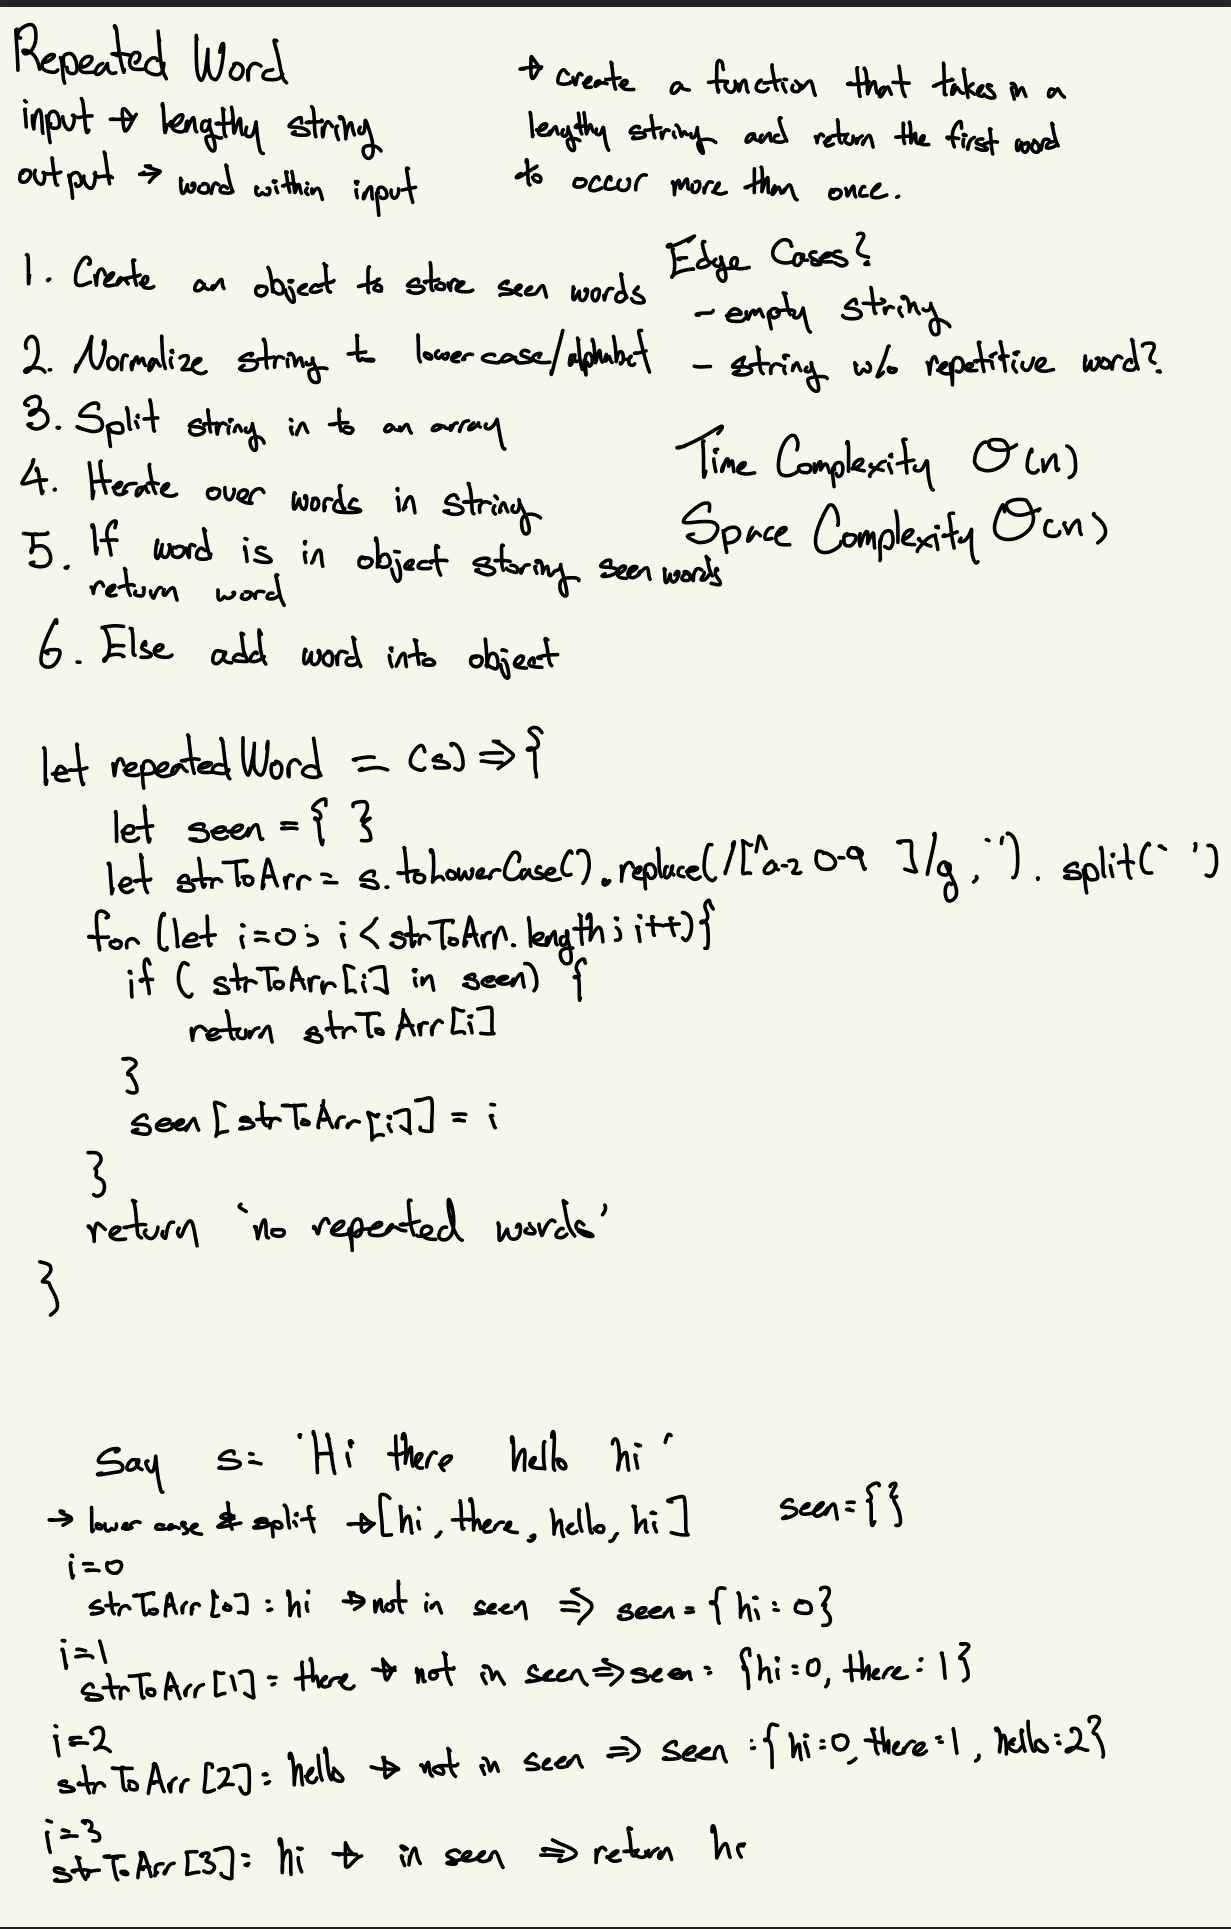 Repeated Word
input → lengthy string
output → word within input
→ create a function that takes in a
lengthy string and return the first word
to occur more than once.
1. Create an object to store seen words
2. Normalize string to lowercase/alphabet
3. Split string in to an array
4. Iterate over words in string
5. If word is in object storing seen words
return word
6. Else add word into object
Edge Cases?
- empty string
- string w/o repetitive word?
Time Complexity O(n)
Space Complexity O(n)
let repeatedWord = (s) => {
let seen = { }
let strToArr = s.toLowerCase().replace(/[^a-z 0-9 ]/g, '').split(' ')
for (let i=0; i < strToArr.length; i++){
if ( strToArr[i] in seen) {
return strToArr[i]
}
seen[strToArr[i]] = i
}
return 'no repeated words'
}
Say s= 'Hi there hello hi'
→ lower case & split → [hi, there, hello, hi] seen={}
i=0
strToArr[0] = hi → not in seen => seen = {hi:0}
i=1
strToArr[1] = there → not in seen => seen = {hi:0, there:1}
i=2
strToArr[2] = hello → not in seen => seen = {hi:0, there:1, hello:2}
i=3
strToArr[3] = hi → in seen => return hi